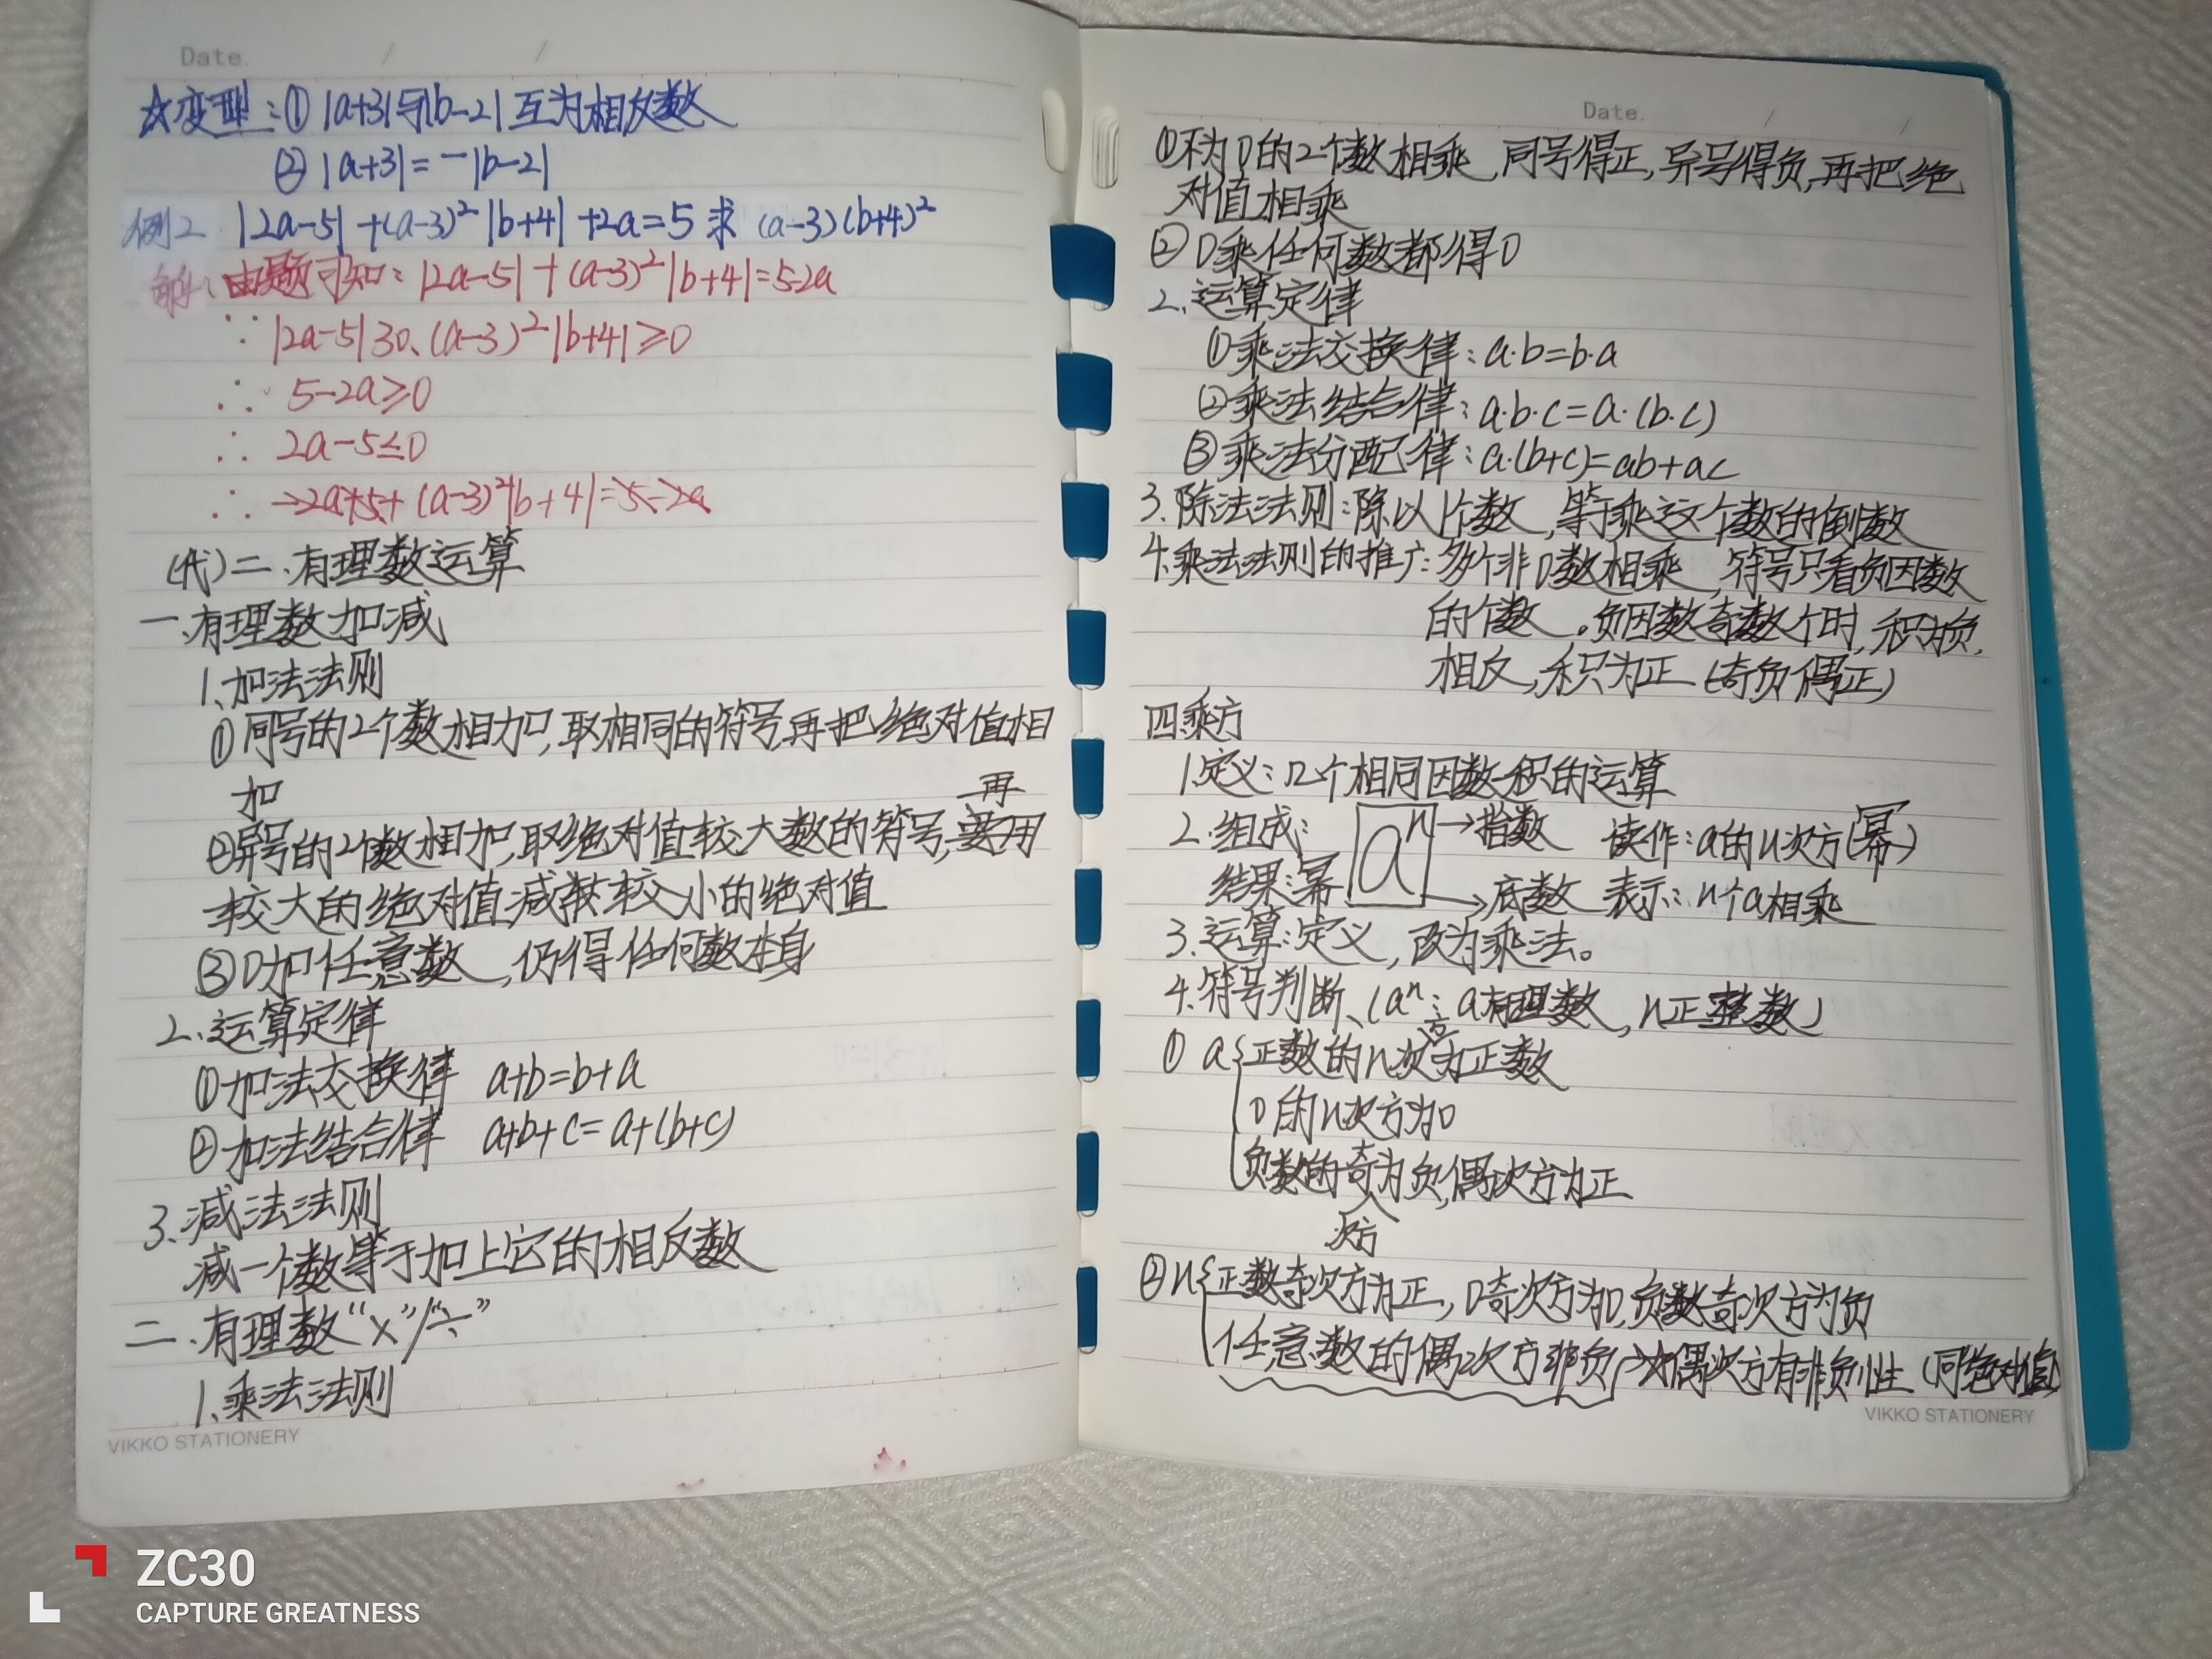 Date / /
☆变型:①|a+3|与|b-2|互为相反数
②|a+3|=-|b-2|
例2 |2a-5|+(a-3)²|b+4|+2a=5求(a-3)(b+4)²
解:由题可知:|2a-5|+(a-3)²|b+4|=5-2a
∵|2a-5|≥0、(a-3)²|b+4|≥0
∴5-2a≥0
∴2a-5≤0
∴-2a+5+(a-3)²|b+4|=5-2a
(代)二.有理数运算
一.有理数加减
1.加法法则
①同号的2个数相加,取相同的符号,再把绝对值相
加
再
②异号的2个数相加,取绝对值较大数的符号,用
较大的绝对值减较小的绝对值
③0加任意数,仍得任何数本身
2.运算定律
①加法交换律 a+b=b+a
②加法结合律 a+b+c=a+(b+c)
3.减法法则
减一个数等于加上它的相反数
二.有理数“×”/“÷”
1.乘法法则
VIKKO STATIONERY
Date / /
①不为0的2个数相乘,同号得正,异号得负,再把绝
对值相乘
②0乘任何数都得0
2.运算定律
①乘法交换律:a·b=b·a
②乘法结合律:a·b·c=a·(b·c)
③乘法分配律:a·(b+c)=ab+ac
3.除法法则:除以1个数,等于乘这个数的倒数
4.乘法法则的推广:多个非0数相乘,符号只看负因数
的个数。负因数奇数个时,积为负,
相反,积为正(奇负偶正)
四.乘方
1.定义:n个相同因数积的运算
2.组成: aⁿ→指数 读作:a的n次方(幂)
结果:幂 →底数 表示:n个a相乘
3.运算:定义,改为乘法。
4.符号判断、(aⁿ:a有理数,n正整数)
①a{正数的n次方为正数
0的n次方为0
负数的奇次方为负,偶次方为正
②n{正数奇次方为正,0奇次方为0,负数奇次方为负
任意数的偶次方非负→☆偶次方有非负性(同绝对值)
VIKKO STATIONERY
ZC30
CAPTURE GREATNESS